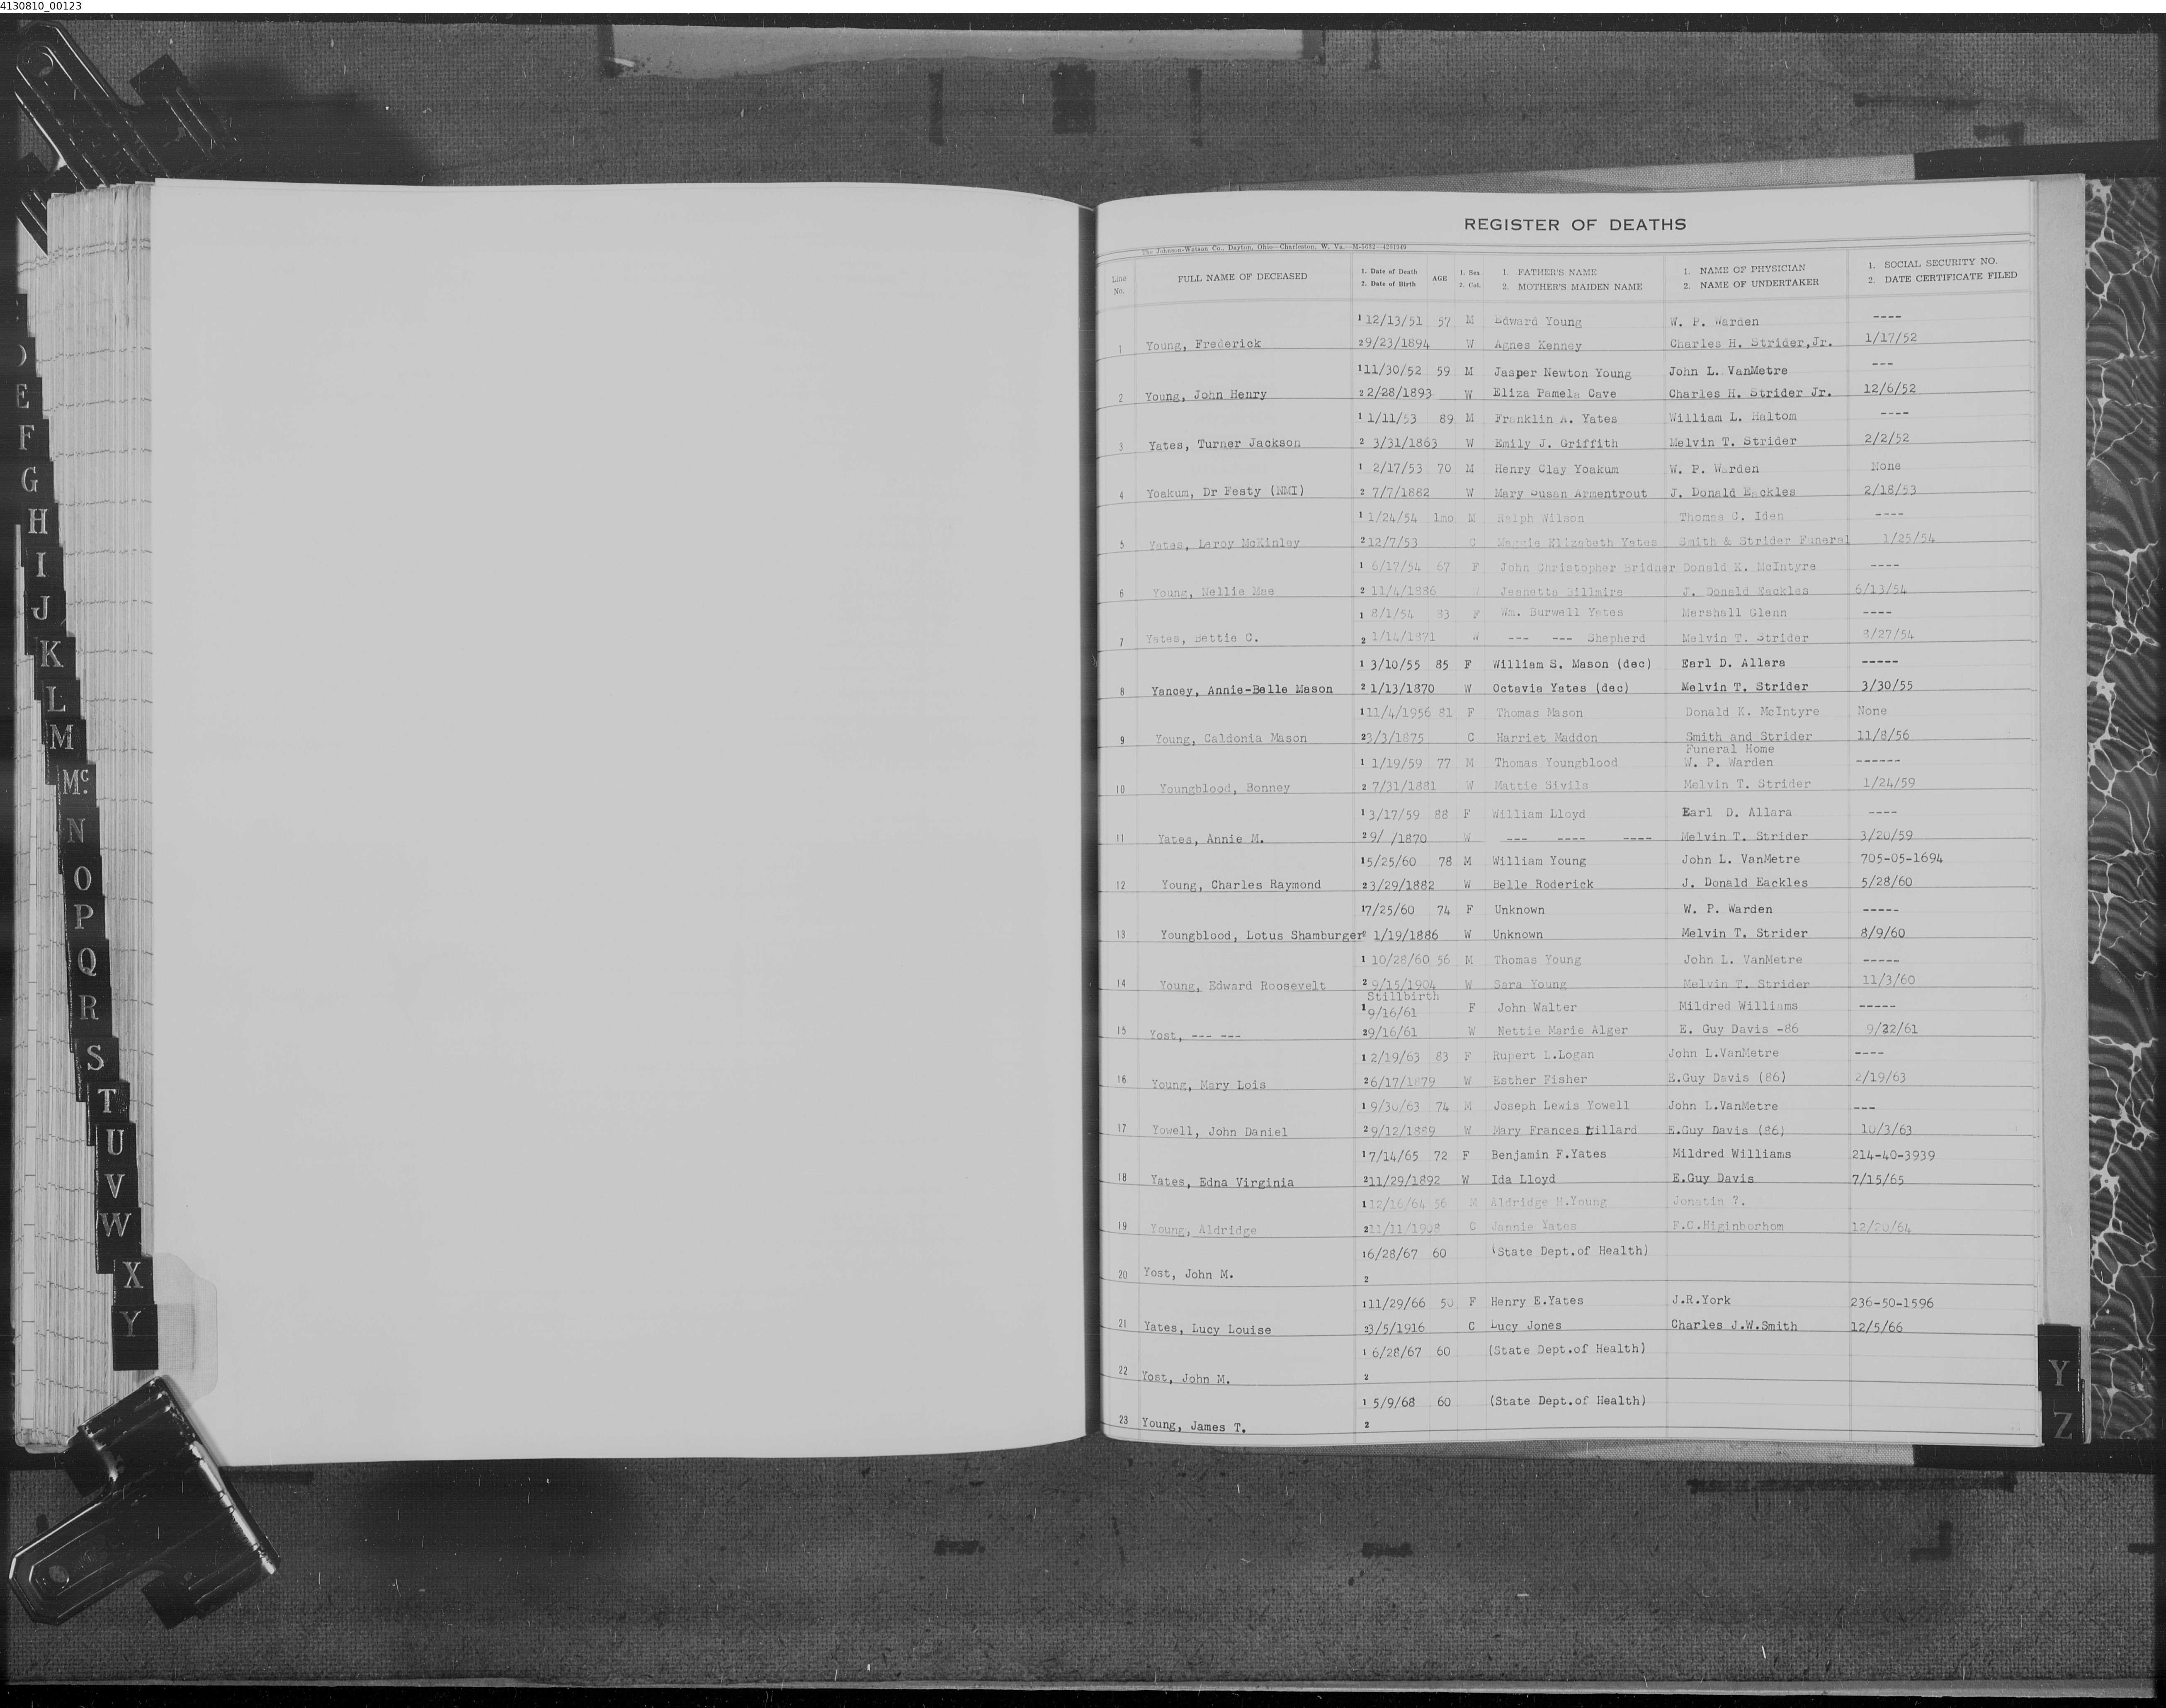 4130810_00123
REGISTER OF DEATHS
The Johnson-Watson Co., Dayton, Ohio—Charleston, W. Va.
Line No. FULL NAME OF DECEASED 1. Date of Death 2. Date of Birth AGE 1. Sex 2. Col. 1. FATHER'S NAME 2. MOTHER'S MAIDEN NAME 1. NAME OF PHYSICIAN 2. NAME OF UNDERTAKER 1. SOCIAL SECURITY NO. 2. DATE CERTIFICATE FILED
1 12/13/51 57 M Edward Young W. P. Warden ----
1 Young, Frederick 2 9/23/1894 W Agnes Kenney Charles H. Strider,Jr. 1/17/52
1 11/30/52 59 M Jasper Newton Young John L. VanMetre ---
2 Young, John Henry 2 2/28/1893 W Eliza Pamela Cave Charles H. Strider Jr. 12/6/52
1 1/11/53 89 M Franklin A. Yates William L. Haltom ----
3 Yates, Turner Jackson 2 3/31/1863 W Emily J. Griffith Melvin T. Strider 2/2/52
1 2/17/53 70 M Henry Clay Yoakum W. P. Warden None
4 Yoakum, Dr Festy (NMI) 2 7/7/1882 W Mary Susan Armentrout J. Donald Eackles 2/18/53
1 1/24/54 1mo M Ralph Wilson Thomas C. Iden ----
5 Yates, Leroy McKinley 2 12/7/53 C Maggie Elizabeth Yates Smith & Strider Funeral 1/25/54
1 6/17/54 67 F John Christopher Bridner Donald K. McIntyre ----
6 Young, Nellie Mae 2 11/4/1886 W Jeanette Billmire J. Donald Eackles 6/13/54
1 8/1/54 83 F Wm. Burwell Yates Marshall Glenn ----
7 Yates, Bettie C. 2 1/14/1871 W --- --- Shepherd Melvin T. Strider 8/27/54
1 3/10/55 85 F William S. Mason (dec) Earl D. Allara -----
8 Yancey, Annie-Belle Mason 2 1/13/1870 W Octavia Yates (dec) Melvin T. Strider 3/30/55
1 11/4/1956 81 F Thomas Mason Donald K. McIntyre None
9 Young, Caldonia Mason 2 3/3/1875 C Harriet Maddon Smith and Strider 11/8/56
Funeral Home
1 1/19/59 77 M Thomas Youngblood W. P. Warden ------
10 Youngblood, Bonney 2 7/31/1881 W Mattie Sivils Melvin T. Strider 1/24/59
1 3/17/59 88 F William Lloyd Earl D. Allara ----
11 Yates, Annie M. 2 9/ /1870 W --- ---- ---- Melvin T. Strider 3/20/59
1 5/25/60 78 M William Young John L. VanMetre 705-05-1694
12 Young, Charles Raymond 2 3/29/1882 W Belle Roderick J. Donald Eackles 5/28/60
1 7/25/60 74 F Unknown W. P. Warden -----
13 Youngblood, Lotus Shamburger 2 1/19/1886 W Unknown Melvin T. Strider 8/9/60
1 10/28/60 56 M Thomas Young John L. VanMetre -----
14 Young, Edward Roosevelt 2 9/15/1904 W Sara Young Melvin T. Strider 11/3/60
Stillbirth
1 9/16/61 F John Walter Mildred Williams -----
15 Yost, --- --- 2 9/16/61 W Nettie Marie Alger E. Guy Davis -86 9/22/61
1 2/19/63 83 F Rupert L.Logan John L.VanMetre ----
16 Young, Mary Lois 2 6/17/1879 W Esther Fisher E.Guy Davis (86) 2/19/63
1 9/30/63 74 M Joseph Lewis Yowell John L.VanMetre ---
17 Yowell, John Daniel 2 9/12/1889 W Mary Frances Lillard E.Guy Davis (86) 10/3/63
1 7/14/65 72 F Benjamin F.Yates Mildred Williams 214-40-3939
18 Yates, Edna Virginia 2 11/29/1892 W Ida Lloyd E.Guy Davis 7/15/65
1 12/16/64 56 M Aldridge H.Young Jonatin ?.
19 Young, Aldridge 2 11/11/1908 C Jannie Yates F.C.Higinborhom 12/20/64
1 6/28/67 60 (State Dept.of Health)
20 Yost, John M. 2
1 11/29/66 50 F Henry E.Yates J.R.York 236-50-1596
21 Yates, Lucy Louise 2 3/5/1916 C Lucy Jones Charles J.W.Smith 12/5/66
1 6/28/67 60 (State Dept.of Health)
22 Yost, John M. 2
1 5/9/68 60 (State Dept.of Health)
23 Young, James T. 2
E
F
G
H
I
J
K
L
M
Mc.
N
O
P
Q
R
S
T
U
V
W
X
Y
Y
Z